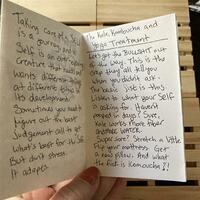 Taking care of a Self
is a journey and a
Self is an ever-evolving
Creature that will want
wants different things
at different stages in
its development.
Sometimes you need to
figure out the best
Judgement call to get
What's best for the Self.
But don't stress.
It adapts.
The Kale, Kombucha and
Yoga Treatment
Let's get the BULLSHIT out
of the way. This is the
crap they all tell you
when you didn't ask.
The basic list is this.
Listen to what your Self
is asking for. Haven't
pooped in days? Sure,
Kale works more fiber
Another water.
Super sore? Stretch a little
Flip your mattress. Get
a new pillow. And what
the fuck is Kombucha?!